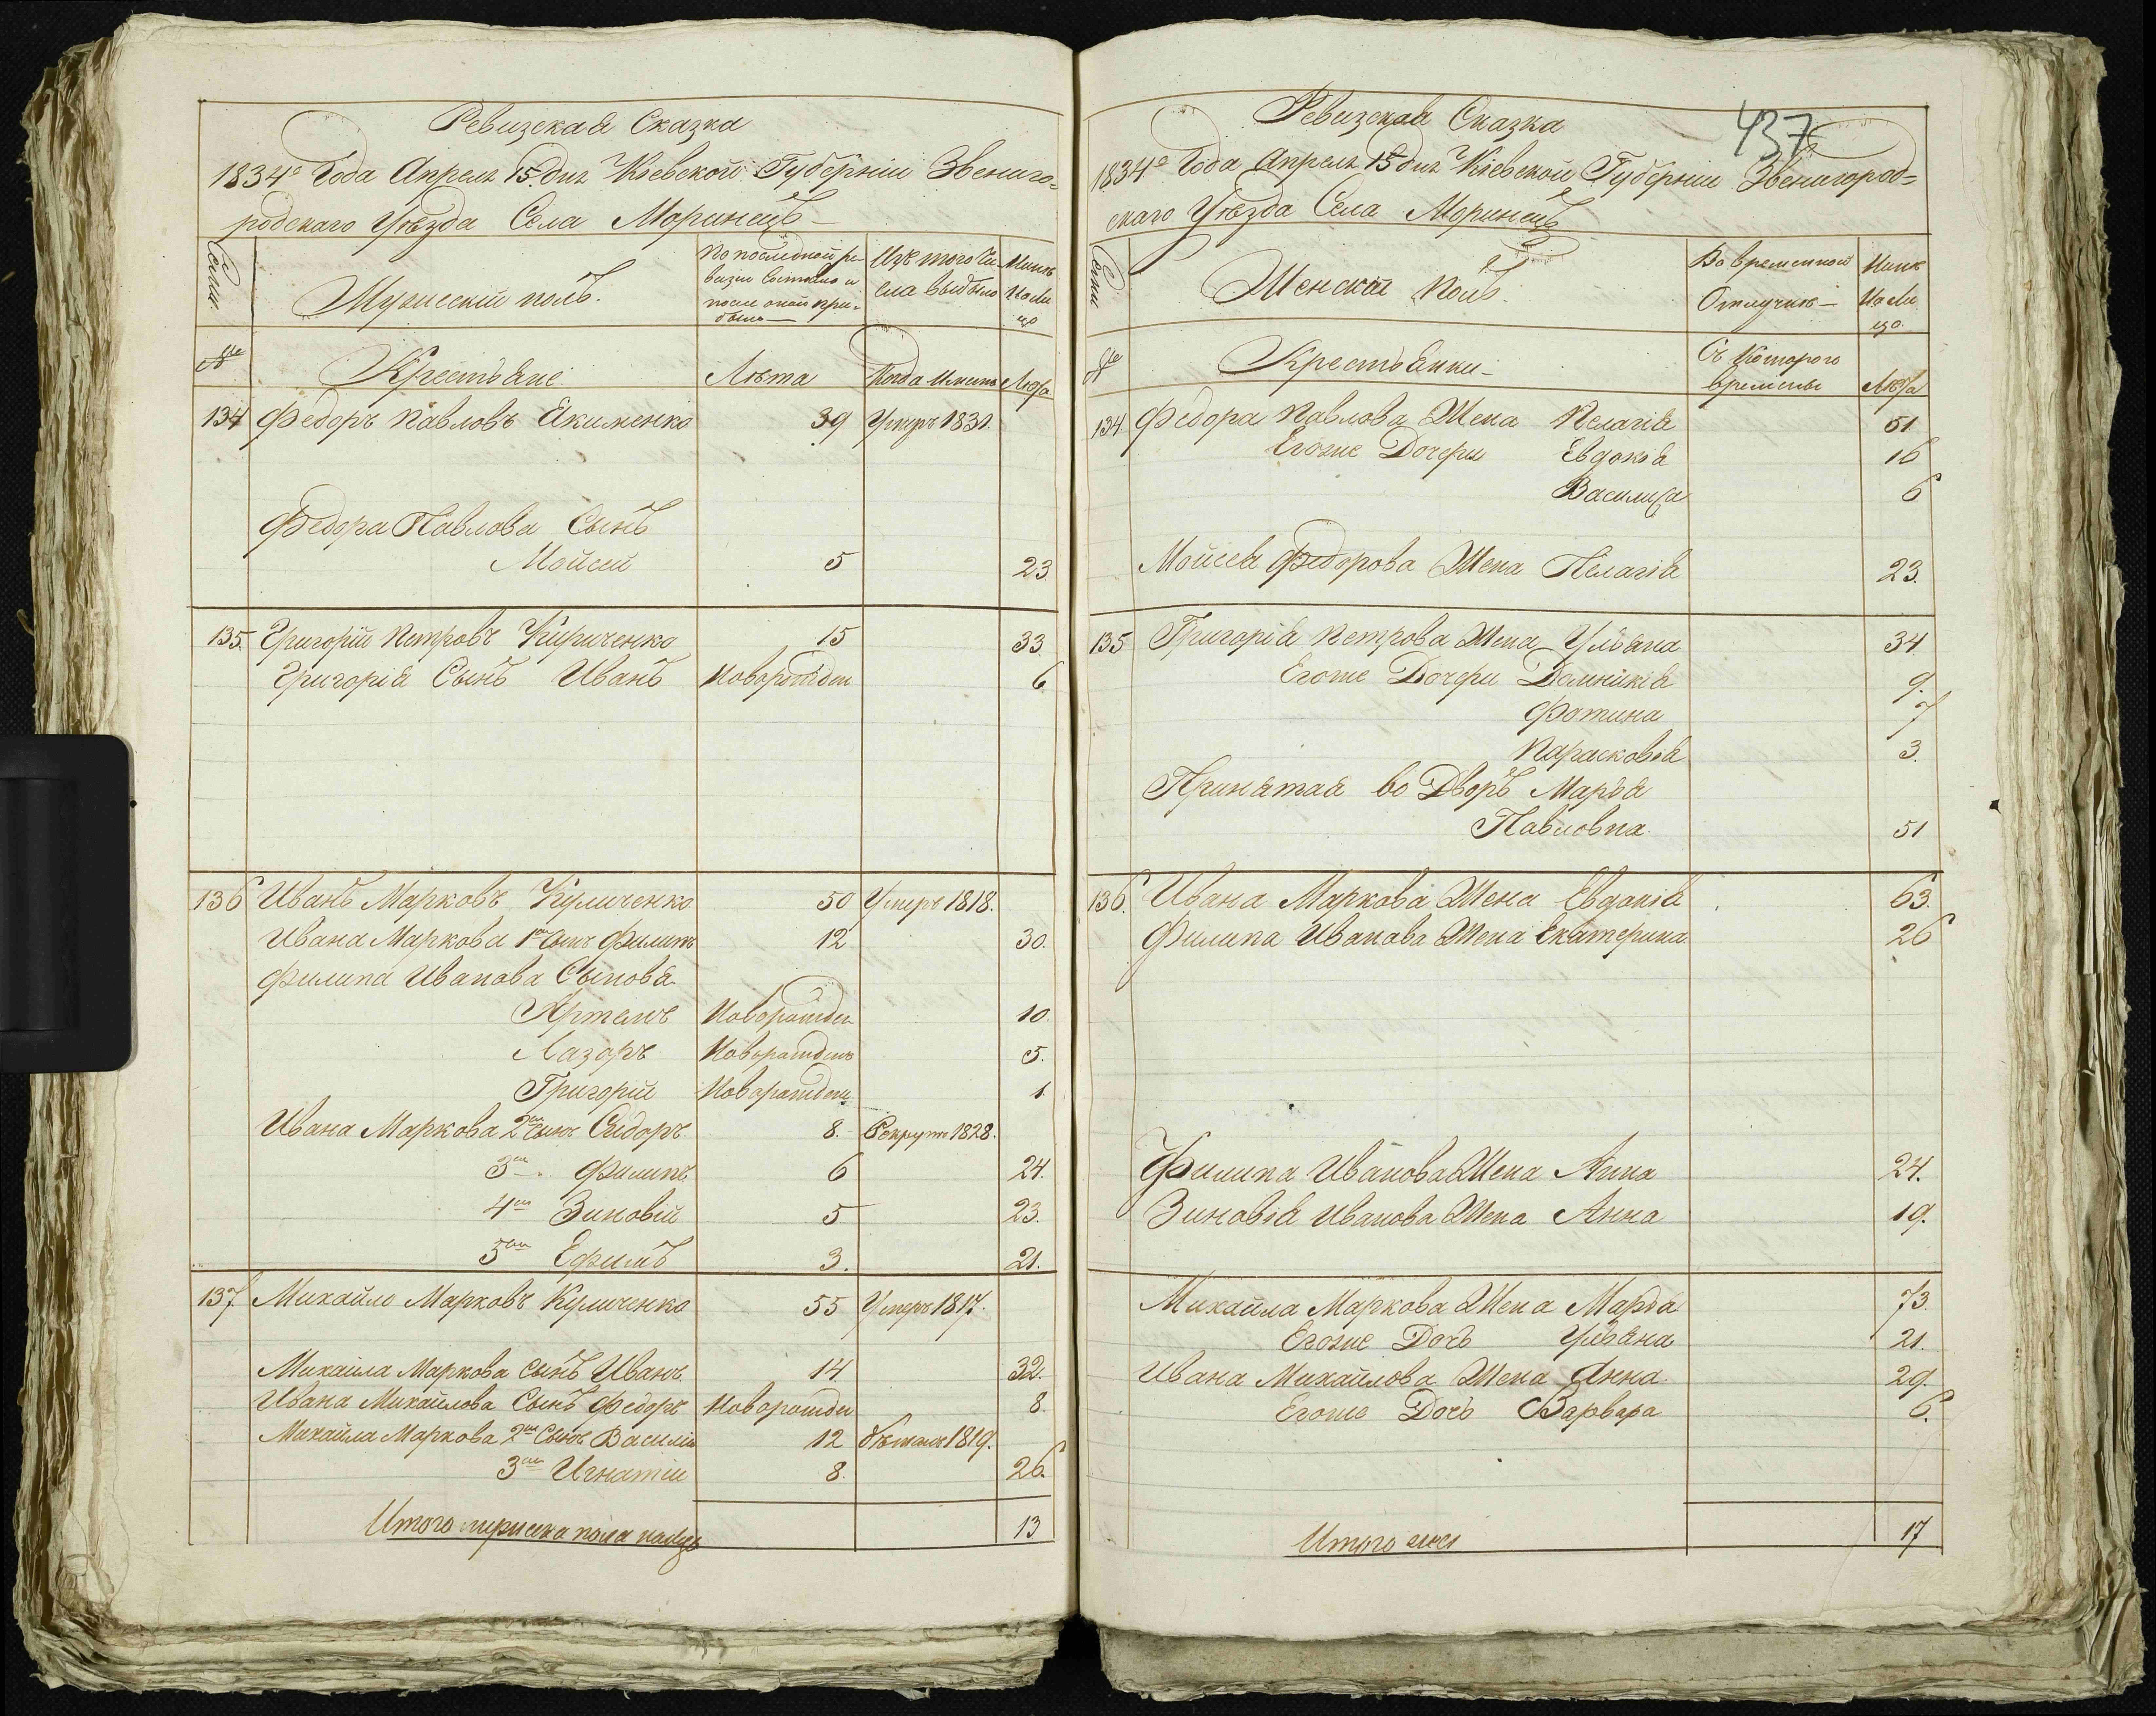 Ревизская Сказка
1834го Года Апреля 15 дня Кіевской Губерніи Звениго-
родскаго Уѣзда Села Моринецъ
Семьи
Мужескій полъ.
По последной ре-
визіи состояло и
после оной при-
было
Изъ того чи-
сла выбыло
Нынѣ
На ли
цо
№
Крестьяне
Лѣта
Когда имянно
Лѣта
134 Федоръ Павловъ Якименко 39 Умеръ 1831.
Федора Павлова Сынъ
Мойсей 5 23.
135. Григорій Петровъ Кириченко 15 33.
Григорія Сынъ Иванъ Новорожден 6
136 Иванъ Марковъ Куличенко 50 Умеръ 1818.
Ивана Маркова 1й Сынъ Филипъ 12 30.
Филипа Иванова Сыновья
Артемъ Новорожден 10.
Лазоръ Новорожденъ 5.
Григорій Новорожден 1.
Ивана Маркова 2й Сынъ Сидоръ 8. Рекрутъ 1828.
3й Филипъ 6 24.
4й Зиновій 5 23.
5й Ефимъ 3. 21.
137. Михайло Марковъ Куличенко 55 Умеръ 1817.
Михайла Маркова сынъ Иванъ 14 32.
Ивана Михайлова Сынъ Федоръ Новорожден 8.
Михайла Маркова 2й Сынъ Василій 12 бѣжалъ 1819.
3й Игнатій 8. 26.
Итого мужеска пола налицо 13
437
Ревизская Сказка
1834го Года Апреля 15 дня Кіевской Губерніи Звенигород-
скаго Уѣзда Села Моринецъ
Семьи
Женскій полъ.
Во временной
Отлучкѣ
Нынѣ
На ли
цо.
№
Крестьянки
Съ Которого
времены
Лѣта
134. Федора Павлова Жена Пелагія 51
Егоже Дочери Евдокія 16
Василиса 6
Мойсея Федорова Жена Пелагія 23.
135 Григорія Петрова Жена Ульяна 34
Егоже Дочери Домникія 9.
Фотина 7
Парасковія 3.
Принятая во Дворъ Марья
Павловна. 51
136. Ивана Маркова Жена Евдокія 63.
Филипа Иванова Жена Екатерина. 26
Филипа Иванова Жена Анна 24.
Зиновія Иванова Жена Анна 19.
Михайла Маркова Жена Марья 73.
Егоже Дочь Ульяна 21.
Ивана Михайлова Жена Анна. 29.
Егоже Дочь Варвара 6.
Итого 17